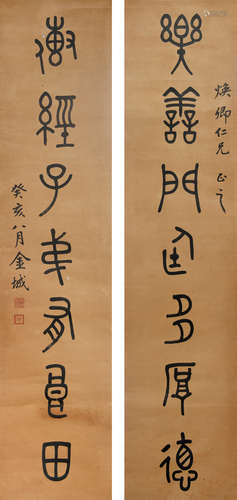 煥卿仁兄正之
樂善門廷多厚德
經子弟有良田
癸亥八月金城